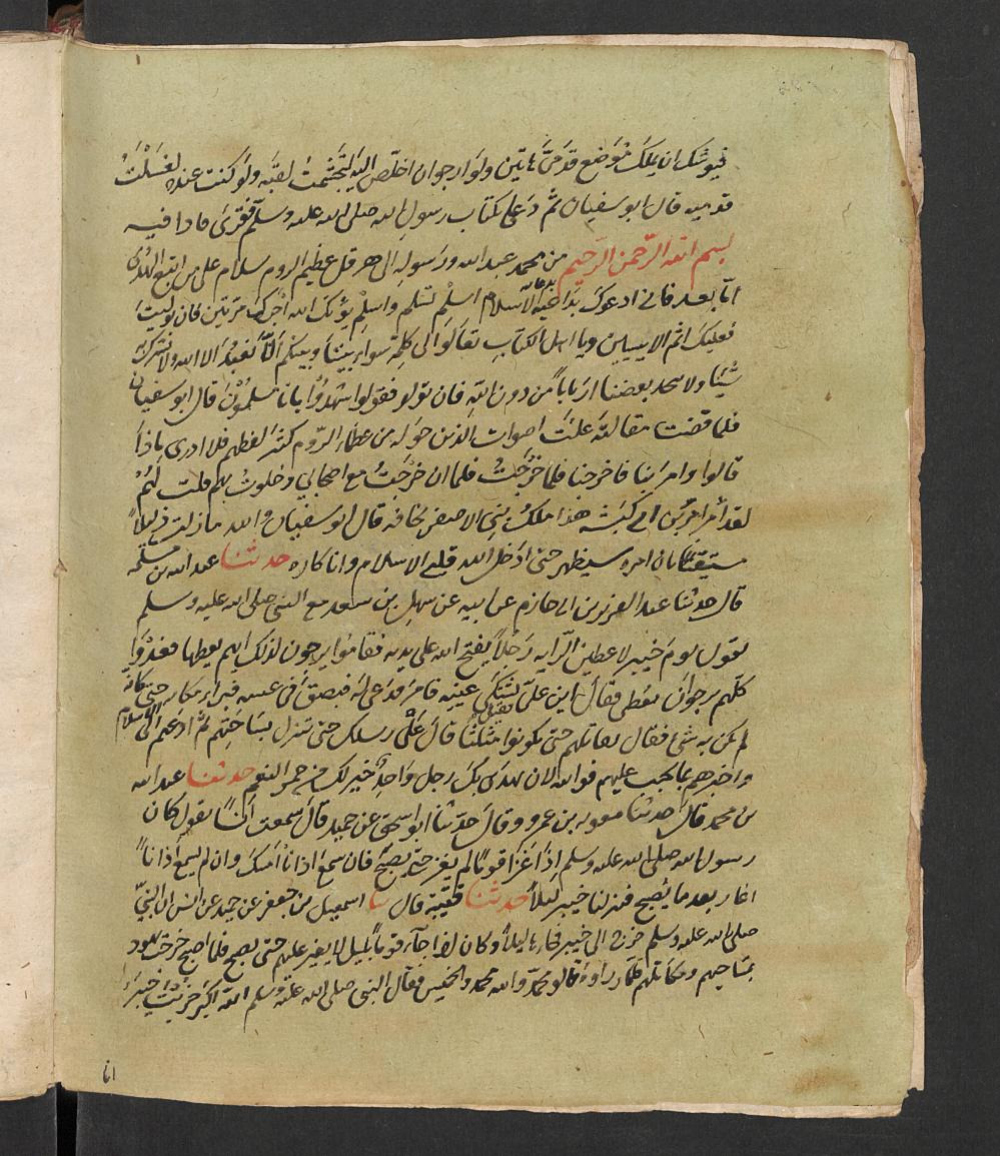 فيوشك ان يملك مَوضع قدمَيَّ هاتين ولَوَارجوان اخلّص اليه لتجشّمتُ لقيَه ولوكنت عنده لغسَلْتُ
قدميه قال ابو سفيان ثم دَعَى بكتاب رسول الله صلى الله عليه وسلم فقرئ فاذا فيه
بسم الله الرّحمن الرّحيم من محمد عبدالله ورَسولِه الى هرقل عظيم الروم سلام على من اتبع الهُدى
امّا بعد فاني ادعوكَ بدَاعية الاسلام اسلم تسلم واسلِمْ يؤتك الله اجرك مرّتين فان توليتَ
فعليك اثم الاريسيين ويا اهل الكتاب تعالَوا الى كلمة سواء بيننا وبينكم ألَّا نعبدُ الا الله ولا نشرك به
شيئا ولا يتخذ بعضنا اربَاباً من دون الله فان تولو فقولوا اشهدُوا بانا مسلمُوْنَ قال ابو سفيان
فلما قضىَ مقالته علَتَ اصوات الذين حَوله من عظماء الرّوم كثر لغطهم فلا ادرى ماذا
قالوا وامرَ بنا فاخرجنا فلما خَرَجْتُ فلما ان خَرَجتُ مع اصحابي وخلوتُ بهم قلت لَهُمْ
لقد أمر امر بن ابى كبشه هذا ملكُ بنى الاصفر يخافه قال ابو سفيان والله مازلت ذليلاً
مستيقنًا بان امره سيظهر حتى ادخل الله قلبي الاسلام وانا كاره حدثنا عبد الله بن مسلمة
قال حدثنا عبد العزيز بن ابى حازم عن ابيه عن سهل بن سعد سمع النبى صلى الله عليه وسلم
يقول يوم خيبر لاعطين الرّايه رَجُلاً يفتح الله على يديه فقاموا يرجون لذلك ايهم يعطها فغدَوْا
كلهم يرجوان يعطى فقال اين علىّ فقيل يشتكى عينيه فامر فدعى لَهُ فبصق فى عينيه فبرا مكانه حتى كانه
لم يكن به شئ فقال نقاتلهم حتى يكونوا مثلنا قالَ عَلَى رسلك حتى تنزل بسَاحتهم ثم ادعهم الى الاسلام
واخبرهم بما يجب عليهم فوالله لان يهدَى بك رجل واحدٌ خير لك من حمر النعم حدثنا عبد الله
بن محمد قال حدثنا معويه بن عمرو وقال حدّثنا ابو اسحق عن حميد قال سمعت انسًا يقول كان
رسول الله صلى الله عليه وسلم اذا غزا قوماً لم يغر حتى يصبح فان سمع اذاناً امسَكَ وان لم يسمع أذاناً
اغار بعد ما يُصبح فنزلنا خيبر ليلاً حدثنا قتيبة قال ثنا اسمعيل بن جعفر عن حميد عن انس ان النبيَّ
صلى الله عليه وسلم خرج الى خيبر فجاءها ليلاً وكان اذا جاء قوماً بليل لا يغير عليهم حتى يصبح فلما اصبح خرجت يهود
بمساحيهم ومكاتلهم فلما راوه قالو محمّد والله محمد والخميس فقال النبى صلى الله عليه وسلم الله اكبر خربَتْ خيبَر